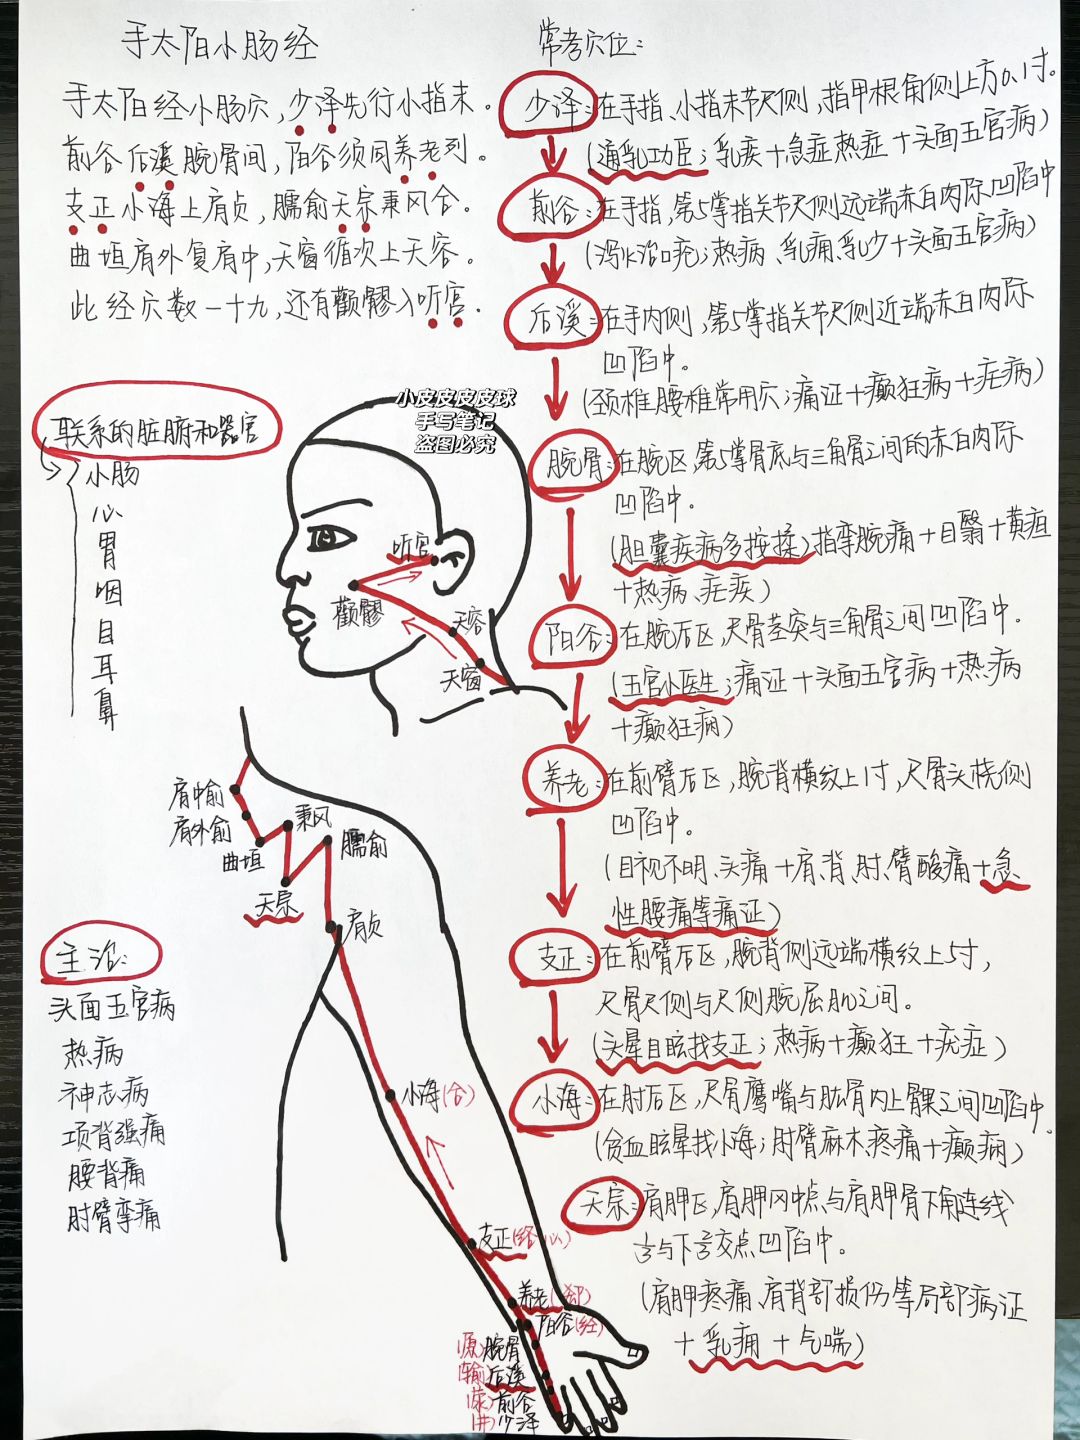 手太阳小肠经
手太阳经小肠穴，少泽先行小指末。
前谷后溪腕骨间，阳谷须同养老列。
支正小海上肩贞，臑俞天宗秉风合。
曲垣肩外复肩中，天窗循次上天容。
此经穴数一十九，还有颧髎入听宫．
联系的脏腑和器官
小肠
心
胃
咽
目
耳
鼻
主治：
头面五官病
热病
神志病
项背强痛
腰背痛
肘臂挛痛
小皮皮皮皮球
手写笔记
盗图必究
听宫
颧髎
天容
天窗
肩中俞
肩外俞
曲垣
秉风
臑俞
天宗
肩贞
小海(合)
支正(络·心)
养老(郄)
阳谷(经)
(原)腕骨
(输)后溪
(荥)前谷
(井)少泽
常考穴位：
少泽：在手指、小指末节尺侧，指甲根角侧上方0.1寸。
(通乳功臣；乳疾＋急症热症＋头面五官病)
前谷：在手指，第5掌指关节尺侧远端赤白肉际凹陷中
(泻火治口疮；热病、乳痈、乳少＋头面五官病)
后溪：在手内侧，第5掌指关节尺侧近端赤白肉际
凹陷中。
(颈椎腰椎常用穴；痛证＋癫狂病＋疟病)
腕骨：在腕区，第5掌骨底与三角骨之间的赤白肉际
凹陷中。
(胆囊疾病多按揉)指挛腕痛＋目翳＋黄疸
＋热病、疟疾)
阳谷：在腕后区，尺骨茎突与三角骨之间凹陷中．
(五官小医生；痛证＋头面五官病＋热病
＋癫狂病)
养老：在前臂后区，腕背横纹上1寸，尺骨头桡侧
凹陷中。
(目视不明、头痛＋肩、背、肘、臂酸痛＋急
性腰痛等痛证)
支正：在前臂后区，腕背侧远端横纹上5寸，
尺骨尺侧与尺侧腕屈肌之间。
(头晕目眩找支正；热病＋癫狂＋疣症)
小海：在肘后区，尺骨鹰嘴与肱骨内上髁之间凹陷中．
(贫血眩晕找小海；肘臂麻木疼痛＋癫痫)
天宗：肩胛区，肩胛冈中点与肩胛骨下角连线
⅓与下⅔交点凹陷中．
(肩胛疼痛、肩背部损伤等局部病证
＋乳痈＋气喘)